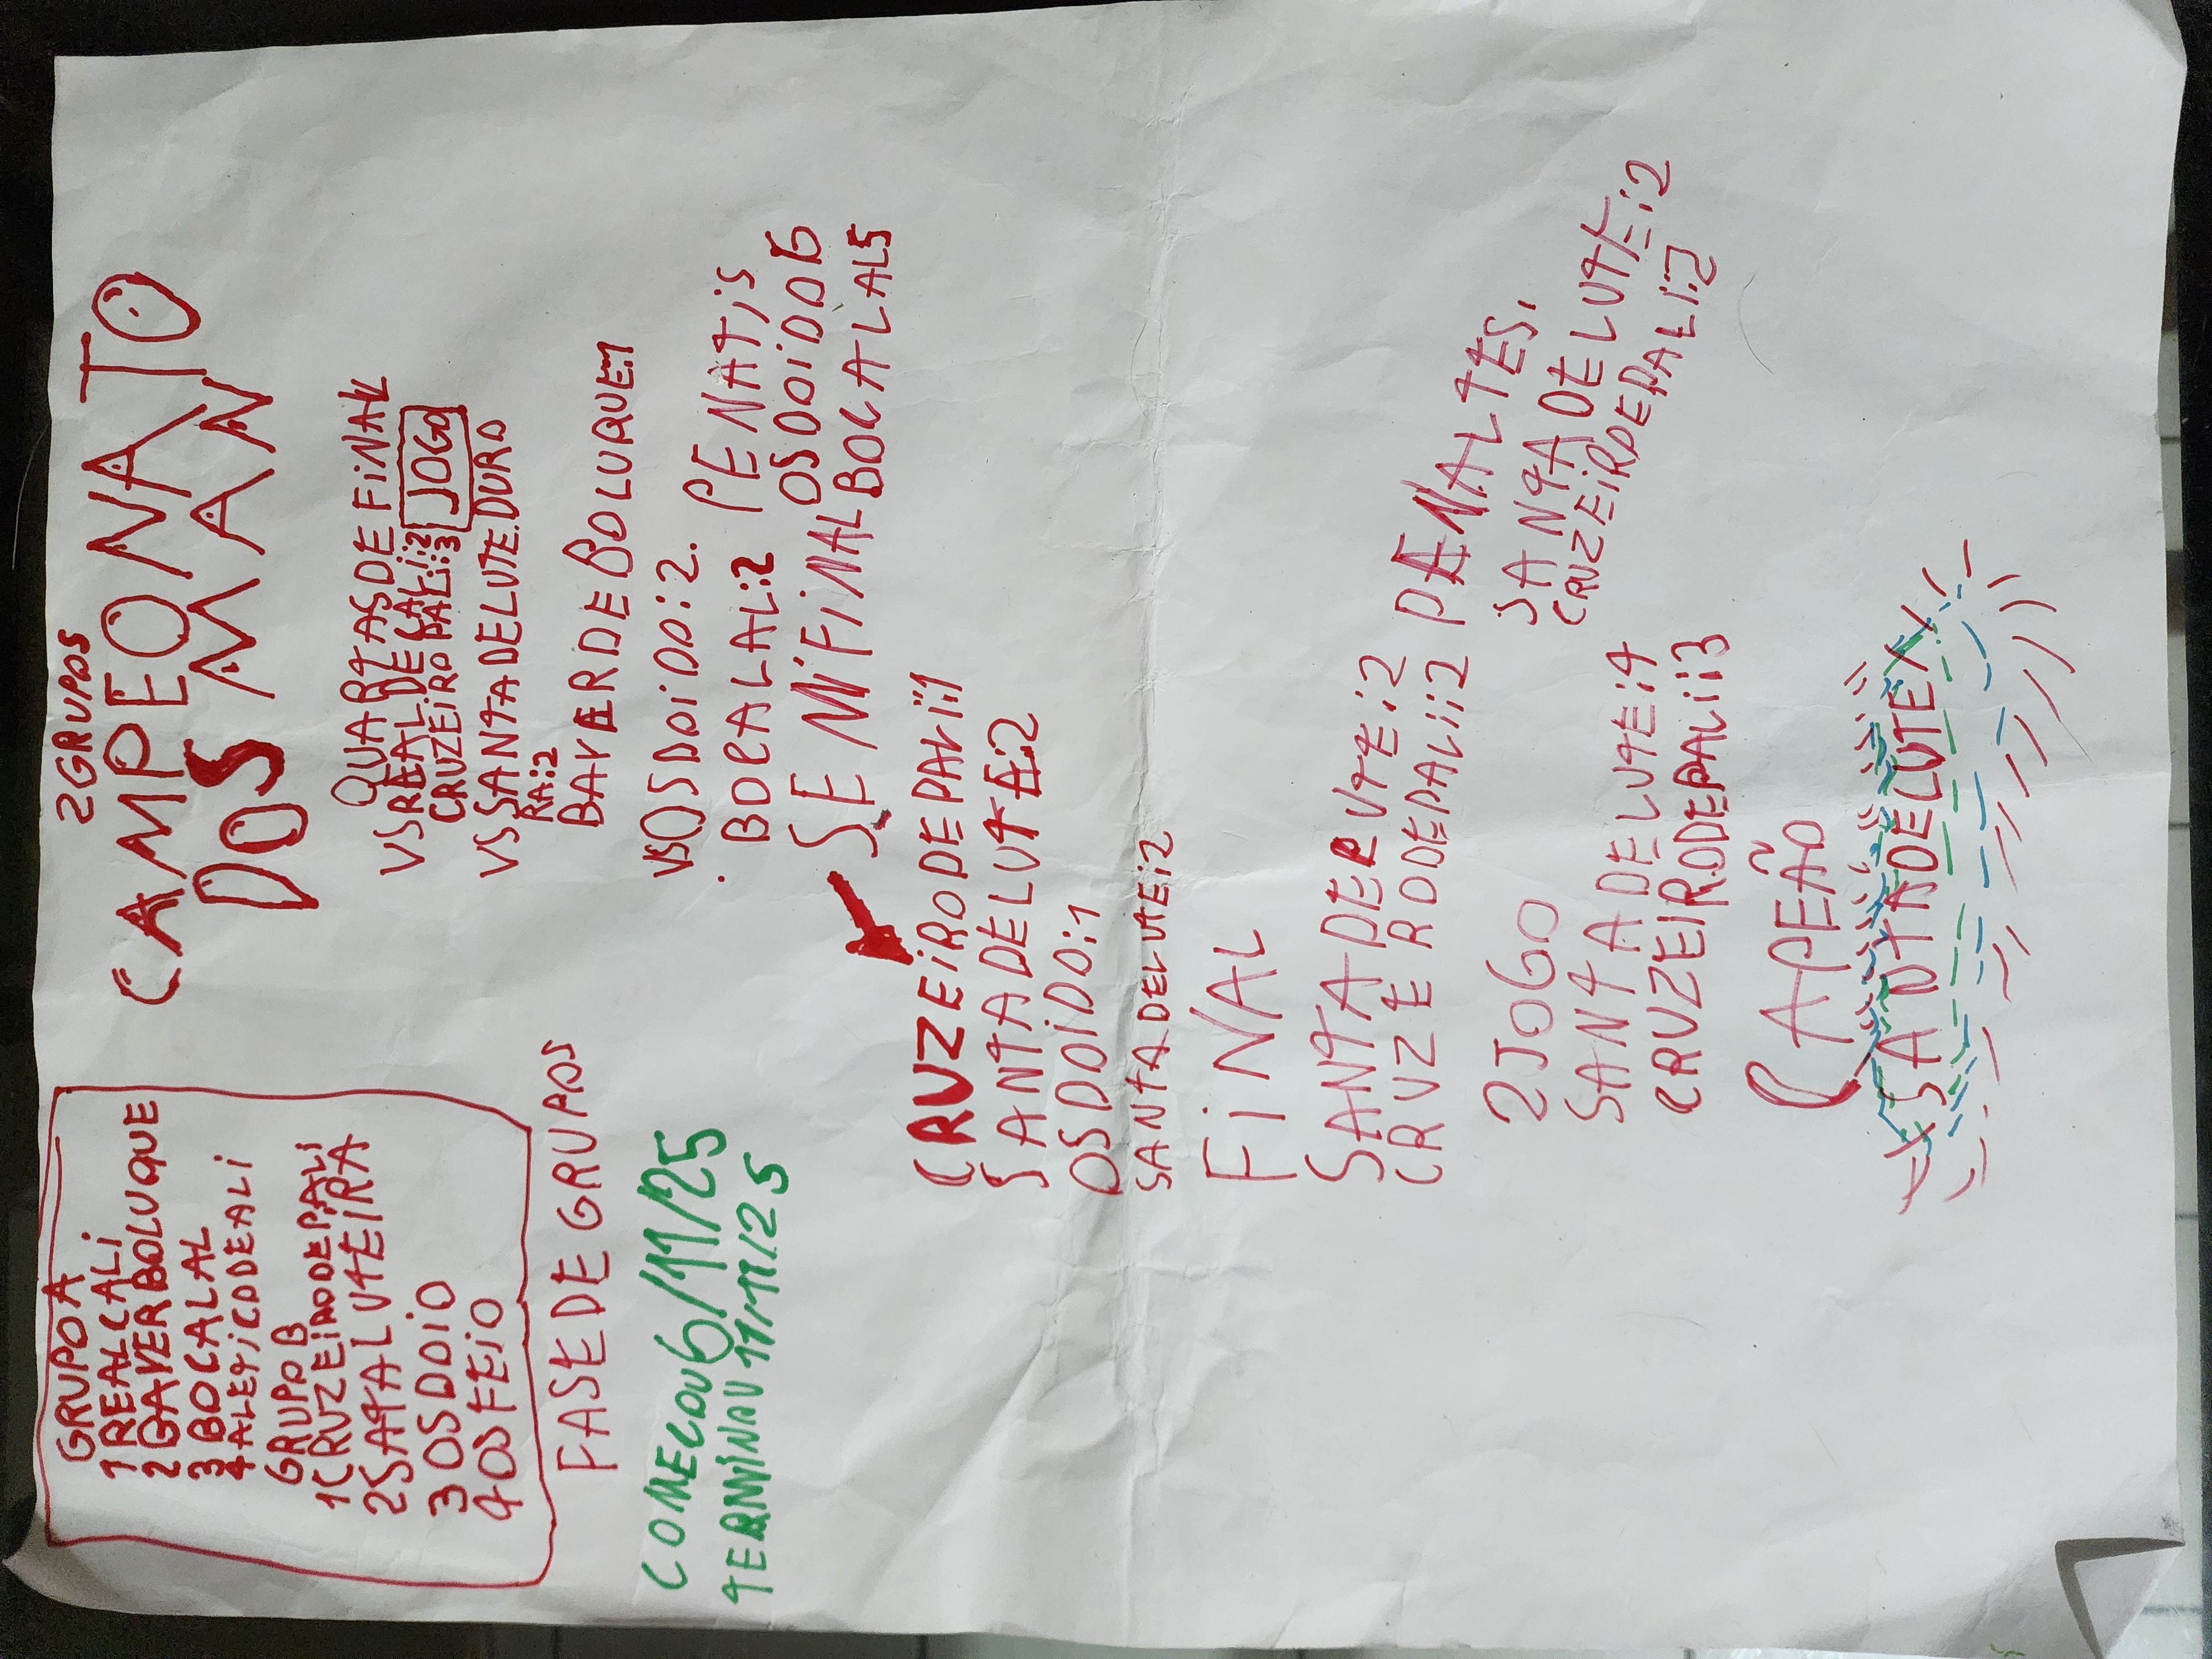 2 GRUPOS
CAMPEONATO
DOS MAN
GRUPO A
1 REAL CALI
2 GAVER BOLUQUE
3 BOCALAL
4 ALETICO DE ALI
GRUPO B
1 CRUZEIRO DE PALI
2 SATA LUTEIRA
3 OS DOIO
4 OS FEIO
FASE DE GRUPOS
COMECOU 6/11/25
TERMINOU 11/11/25
QUARTAS DE FINAL
VS REAL DE CALI:2
CRUZEIRO PALI:3 JOGO
VS SANTA DE LUTE.DURO
RA:2
BAVER DE BOLUQUE:1
VS OS DOIDO:2.
. BOCALAL:2
PENATIS
OS DOIDO 6
BOCALAL 5
SEMIFINAL
CRUZEIRO DE PALI:1
SANTA DE LUTE:2
OS DOIDO:1
SANTA DE LUTE:2
FINAL
SANTA DE LUTE:2
CRUZERO DE PALI:2
PENALTES.
SANTA DE LUTE:2
CRUZEIRO DE PALI:2
2 JOGO
SANTA DE LUTE:4
CRUZEIRO DE PALI:3
CAPEÃO
SANTA DE LUTE